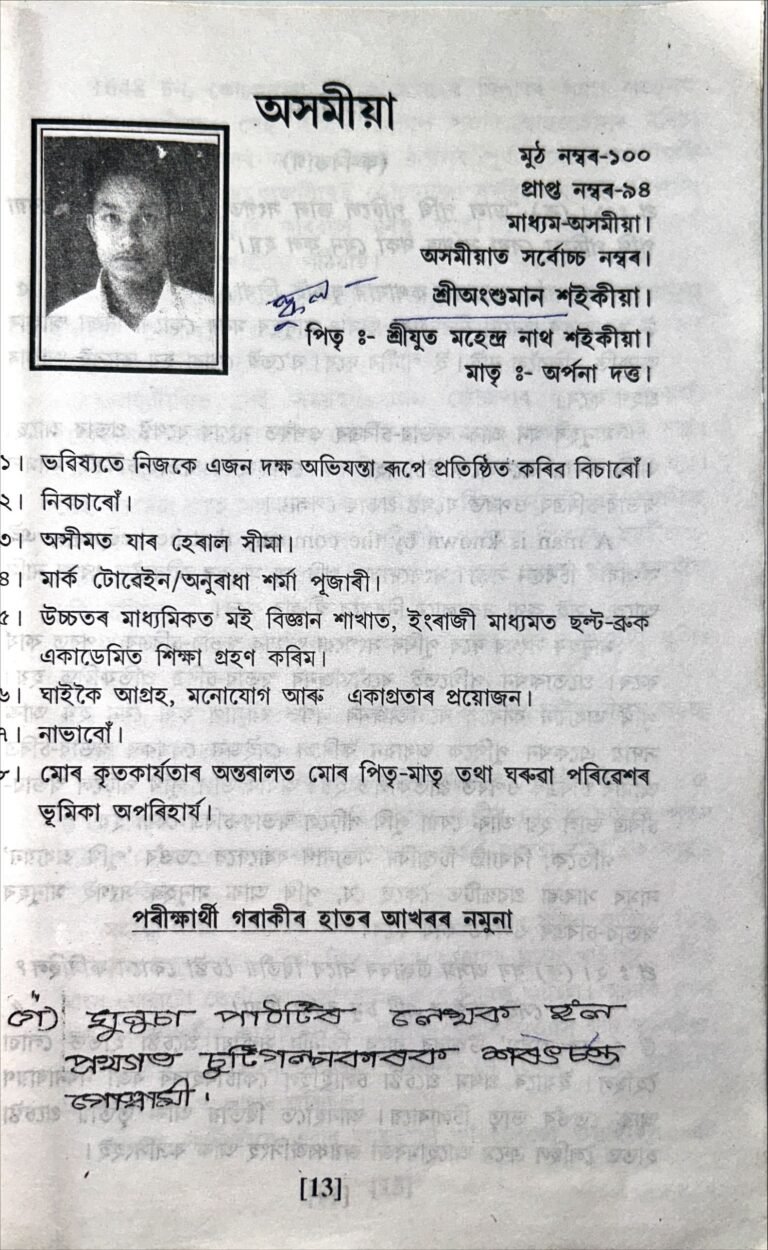 অসমীয়া
মুঠ নম্বৰ-১০০
প্ৰাপ্ত নম্বৰ-৯৪
মাধ্যম-অসমীয়া।
অসমীয়াত সৰ্বোচ্চ নম্বৰ।
শ্ৰীঅংশুমান শইকীয়া।
পিতৃ ঃ- শ্ৰীযুত মহেন্দ্ৰ নাথ শইকীয়া।
মাতৃ ঃ- অৰ্পনা দত্ত।
১। ভৱিষ্যতে নিজকে এজন দক্ষ অভিযন্তা ৰূপে প্ৰতিষ্ঠিত কৰিব বিচাৰোঁ।
২। নিবচাৰোঁ।
৩। অসীমত যাৰ হেৰাল সীমা।
৪। মাৰ্ক টোৱেইন/অনুৰাধা শৰ্মা পূজাৰী।
৫। উচ্চতৰ মাধ্যমিকত মই বিজ্ঞান শাখাত, ইংৰাজী মাধ্যমত ছল্ট-ব্ৰুক
একাডেমিত শিক্ষা গ্ৰহণ কৰিম।
৬। ঘাইকৈ আগ্ৰহ, মনোযোগ আৰু একাগ্ৰতাৰ প্ৰয়োজন।
৭। নাভাবোঁ।
৮। মোৰ কৃতকাৰ্যতাৰ অন্তৰালত মোৰ পিতৃ-মাতৃ তথা ঘৰুৱা পৰিৱেশৰ
ভূমিকা অপৰিহাৰ্য।
পৰীক্ষাৰ্থী গৰাকীৰ হাতৰ আখৰৰ নমুনা
পাঠটিৰ লেখক হ'ল
প্ৰখ্যাত চুটিগল্পকাৰ শৰৎচন্দ্ৰ
গোস্বামী।
[13]